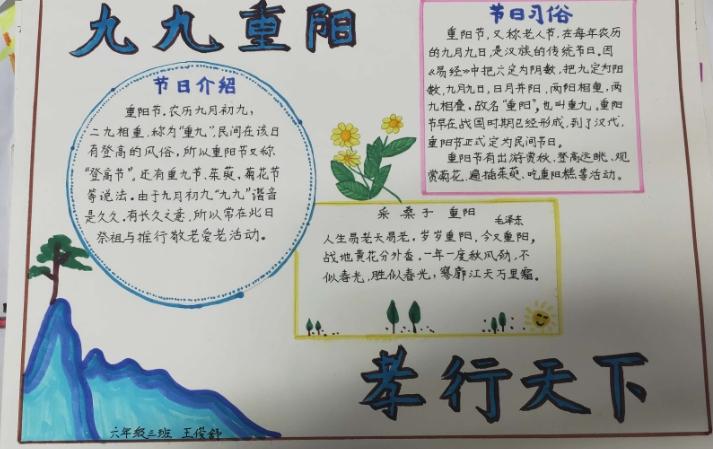 九九重阳
节日介绍
重阳节,农历九月初九,
二九相重,称为“重九”,民间在该日
有登高的风俗,所以重阳节又称
“登高节”,还有重九节、茱萸、菊花节
等说法。由于九月初九“九九”谐音
是久久,有长久之意,所以常在此日
祭祖与推行敬老爱老活动。
节日习俗
重阳节,又称老人节,在每年农历
的九月九日,是汉族的传统节日。因
《易经》中把六定为阴数,把九定为阳
数,九月九日,日月并阳,两阳相重,两
九相叠,故名“重阳”,也叫重九,重阳
节早在战国时期已经形成,到了汉代,
重阳节正式定为民间节日。
重阳节有出游赏秋、登高远眺、观
赏菊花、遍插茱萸、吃重阳糕等活动。
采桑子 重阳
毛泽东
人生易老天易老,岁岁重阳,今又重阳,
战地黄花分外香。一年一度秋风劲,不
似春光,胜似春光,寥廓江天万里霜。
孝行天下
六年级三班 王俊舒